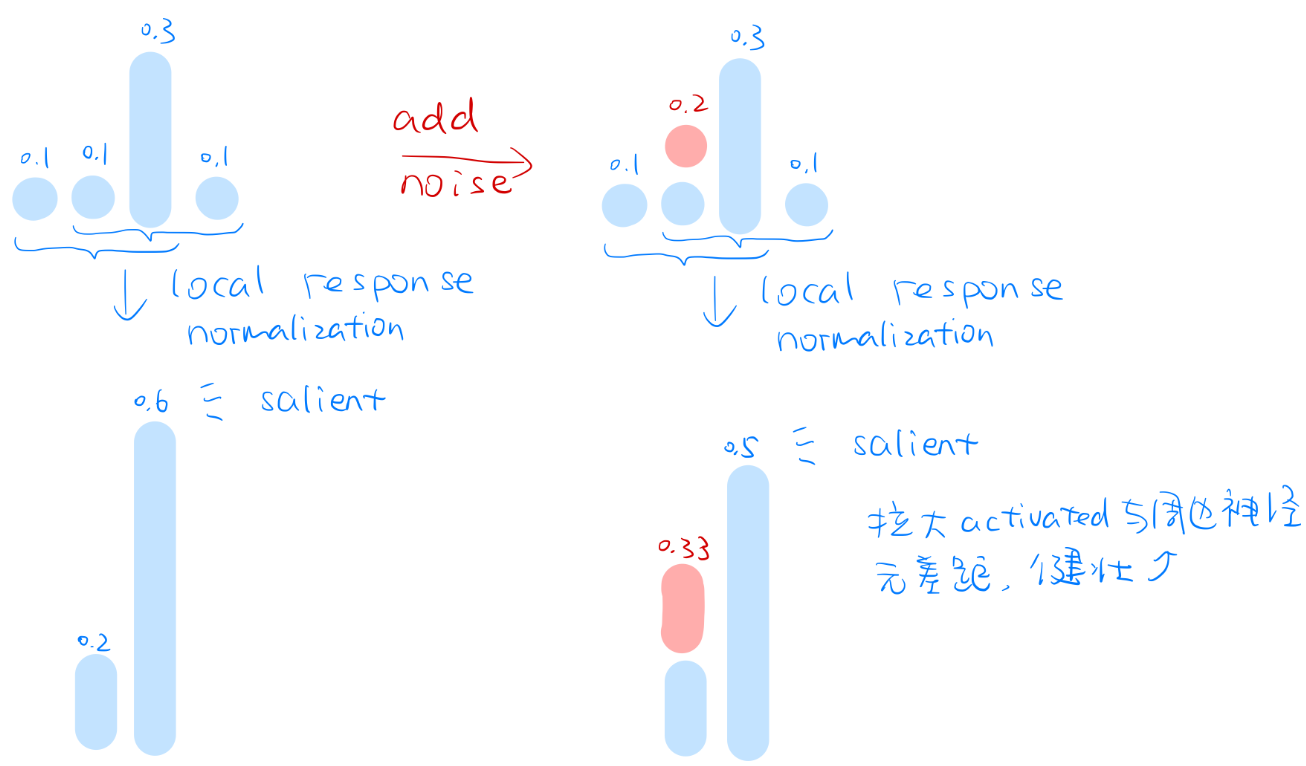 0.3
0.1
0.1
0.1
local response
normalization
0.6
salient
0.2
add
noise
0.3
0.2
0.1
0.1
local response
normalization
0.5
salient
0.33
拉大activated与周边神经
元差距，健壮↑